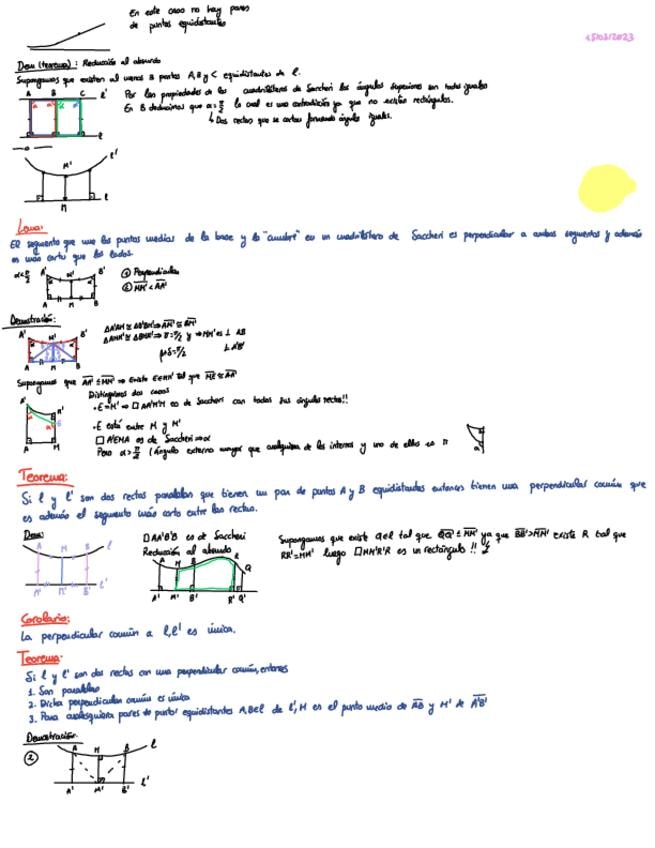 En este caso no hay pares
de puntos equidistantes
15/03/2023
Dem (teorema): Reducción al absurdo
Supongamos que existen al menos 3 puntos A, B y C equidistantes de l.
A B C l'
Por las propiedades de los cuadriláteros de Saccheri los ángulos superiores son todos iguales
En B deducimos que α = π/2 lo cual es una contradicción ya que no existen rectángulos.
↳ Dos rectas que se cortan formando ángulos iguales.
l
M' l'
M l
Lema:
El segmento que une los puntos medios de la base y la "cumbre" en un cuadrilátero de Saccheri es perpendicular a ambos segmentos y además
es más corto que los lados.
α<π/2 A' M' B' ① Perpendicular
② MM' < AA'
A M B
Demostración:
A' M' B'
ΔA'AM ≅ ΔB'BM ⇒ A'M ≅ B'M
ΔAMM' ≅ ΔBMM' ⇒ γ=π/2 y ⇒ MM' es ⊥ AB
β+δ=π/2 ⊥ A'B'
A M B
Supongamos que AA' ≤ MM' ⇒ Existe E∈MM' tal que ME ≅ AA'
Distinguimos dos casos
• E=M' ⇒ □ AA'M'M es de Saccheri con todos sus ángulos rectos!!
• E está entre M y M'
□ A'EMA es de Saccheri ⇒ α
Pero α > π/2 (Ángulo externo mayor que cualquiera de los internos y uno de ellos es π
A' M' E
A M
Teorema:
Si l y l' son dos rectas paralelas que tienen un par de puntos A y B equidistantes entonces tienen una perpendicular común que
es además el segmento más corto entre las rectas.
Dem:
A M B l
A' M' B' l'
□ AA'B'B es de Saccheri
Reducción al absurdo
A M B R Q
A' M' B' R' Q'
Supongamos que existe Q∈l tal que QQ' ≤ MM' ya que BB' > MM' existe R tal que
RR'=MM' luego □MM'R'R es un rectángulo !!
Corolario:
La perpendicular común a l, l' es única.
Teorema:
Si l y l' son dos rectas con una perpendicular común, entonces
1. Son paralelas
2. Dicha perpendicular común es única
3. Para cualesquiera pares de puntos equidistantes A, B∈l de l', M es el punto medio de AB y M' de A'B'
Demostración:
② A M B l
A' M' B' l'